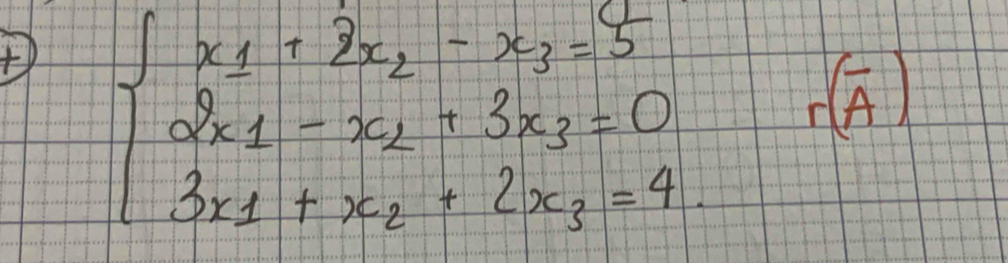 +) x1 + 2x₂ - x₃ = 5
2x1 - x₂ + 3x₃ = 0
3x1 + x₂ + 2x₃ = 4.
r(A̅)